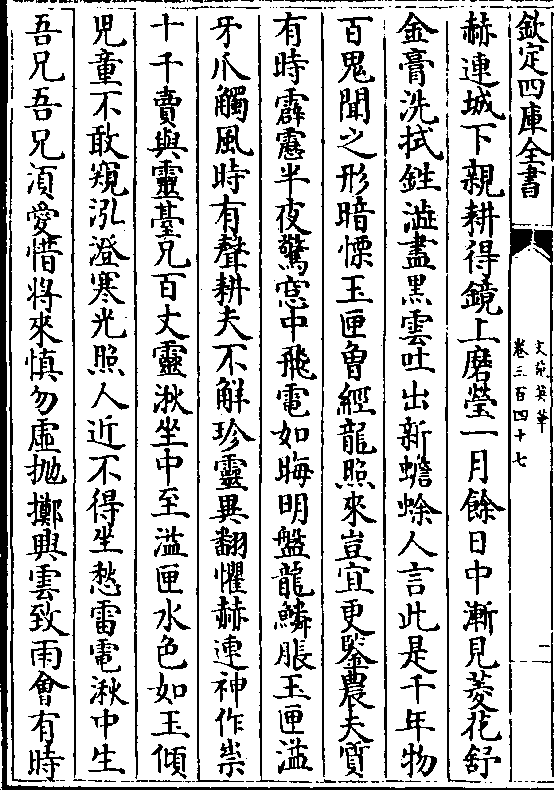 欽定四庫全書
文苑英華
卷三百四十七
二
赫連城下親耕得鏡上磨瑩一月餘日中漸見菱花舒
金膏洗拭鉎澁盡黑雲吐出新蟾蜍人言此是千年物
百鬼聞之形暗慄玉匣曾經龍照來豈宜更鑒農夫質
有時霹靂半夜驚窓中飛電如晦明盤龍鱗脹玉匣溢
牙爪觸風時有聲耕夫不解珍靈異翻懼赫連神作祟
十千賣與靈臺兄百丈靈湫坐中至溢匣水色如玉傾
兒童不敢窺泓澄寒光照人近不得坐愁雷電湫中生
吾兄吾兄湏愛惜將來慎勿虛抛擲興雲致雨會有時